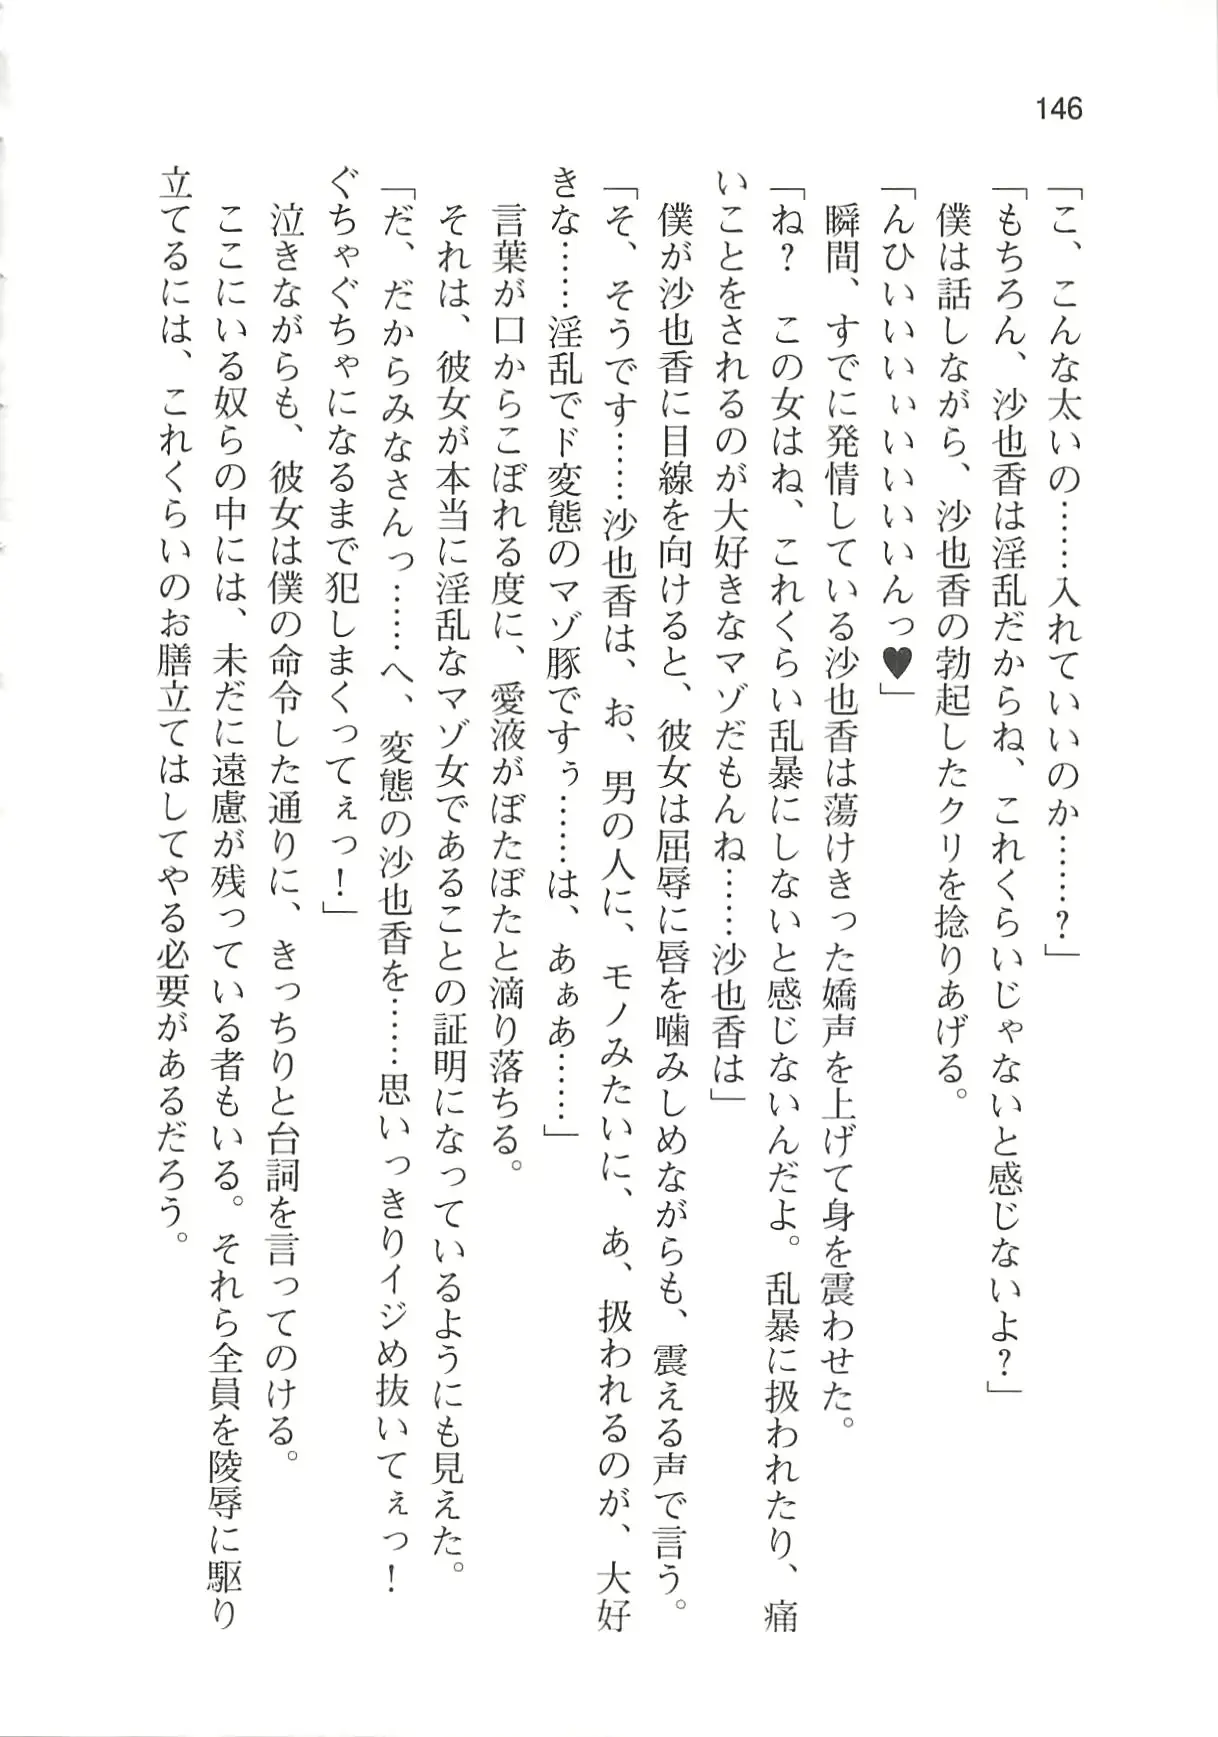 146
「こ、こんな太いの……入れていいのか……？」
「もちろん、沙也香は淫乱だからね、これくらいじゃないと感じないよ？」
僕は話しながら、沙也香の勃起したクリを捻りあげる。
「んひいいいいぃいいいいんっ♥」
瞬間、すでに発情している沙也香は蕩けきった嬌声を上げて身を震わせた。
「ね？　この女はね、これくらい乱暴にしないと感じないんだよ。乱暴に扱われたり、痛
いことをされるのが大好きなマゾだもんね……沙也香は」
僕が沙也香に目線を向けると、彼女は屈辱に唇を噛みしめながらも、震える声で言う。
「そ、そうです……沙也香は、お、男の人に、モノみたいに、あ、扱われるのが、大好
きな……淫乱でド変態のマゾ豚ですぅ……は、あぁあ……」
言葉が口からこぼれる度に、愛液がぼたぼたと滴り落ちる。
それは、彼女が本当に淫乱なマゾ女であることの証明になっているようにも見えた。
「だ、だからみなさんっ……へ、変態の沙也香を……思いっきりイジめ抜いてぇっ！
ぐちゃぐちゃになるまで犯しまくってぇっ！」
泣きながらも、彼女は僕の命令した通りに、きっちりと台詞を言ってのける。
ここにいる奴らの中には、未だに遠慮が残っている者もいる。それら全員を陵辱に駆り
立てるには、これくらいのお膳立てはしてやる必要があるだろう。